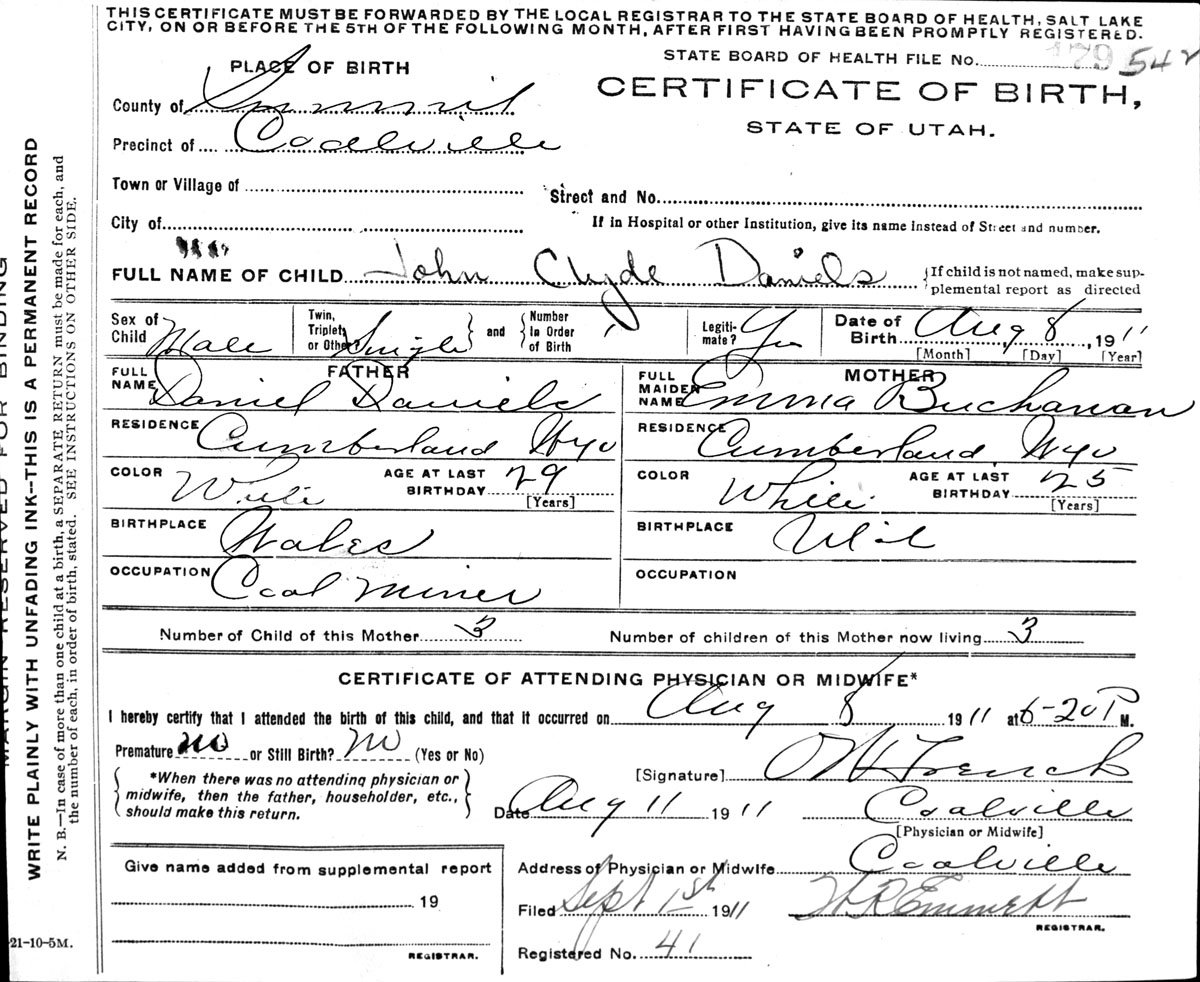 THIS CERTIFICATE MUST BE FORWARDED BY THE LOCAL REGISTRAR TO THE STATE BOARD OF HEALTH, SALT LAKE
CITY, ON OR BEFORE THE 5TH OF THE FOLLOWING MONTH, AFTER FIRST HAVING BEEN PROMPTLY REGISTERED.
STATE BOARD OF HEALTH FILE No. 179 542
PLACE OF BIRTH
CERTIFICATE OF BIRTH,
STATE OF UTAH.
County of Summit
Precinct of Coalville
Town or Village of
Street and No.
City of
If in Hospital or other Institution, give its name instead of Street and number.
FULL NAME OF CHILD John Clyde Daniels {If child is not named, make sup-
plemental report as directed
Sex of Child Male
Twin, Triplet, or Other? Single } and { Number In Order of Birth 1
Legiti-mate? Yes
Date of Birth Aug 8, 1911
[Month] [Day] [Year]
FATHER
FULL NAME Daniel Daniels
RESIDENCE Cumberland Wyo
COLOR White AGE AT LAST BIRTHDAY 29
[Years]
BIRTHPLACE Wales
OCCUPATION Coal Miner
MOTHER
FULL MAIDEN NAME Emma Buchanan
RESIDENCE Cumberland Wyo
COLOR White AGE AT LAST BIRTHDAY 25
[Years]
BIRTHPLACE Utah
OCCUPATION
Number of Child of this Mother 3 Number of children of this Mother now living 3
CERTIFICATE OF ATTENDING PHYSICIAN OR MIDWIFE*
I hereby certify that I attended the birth of this child, and that it occurred on Aug 8 1911 at 6-20 P M.
Premature no or Still Birth? no (Yes or No)
{*When there was no attending physician or
midwife, then the father, householder, etc.,
should make this return.}
[Signature] Trench
Date Aug 11 1911 Coalville
[Physician or Midwife]
Give name added from supplemental report
19
REGISTRAR.
Address of Physician or Midwife Coalville
Filed Sept 1st 1911 Emmett
REGISTRAR.
Registered No. 41
MARGIN RESERVED FOR BINDING
WRITE PLAINLY WITH UNFADING INK--THIS IS A PERMANENT RECORD
N. B.—In case of more than one child at a birth, a SEPARATE RETURN must be made for each, and
the number of each, in order of birth, stated. SEE INSTRUCTIONS ON OTHER SIDE.
21-10-5M.